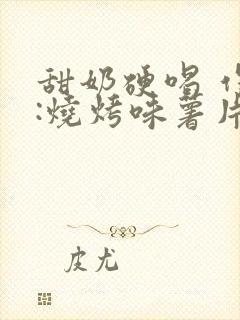 甜奶硬唱
:燒烤味薯片
皮尤